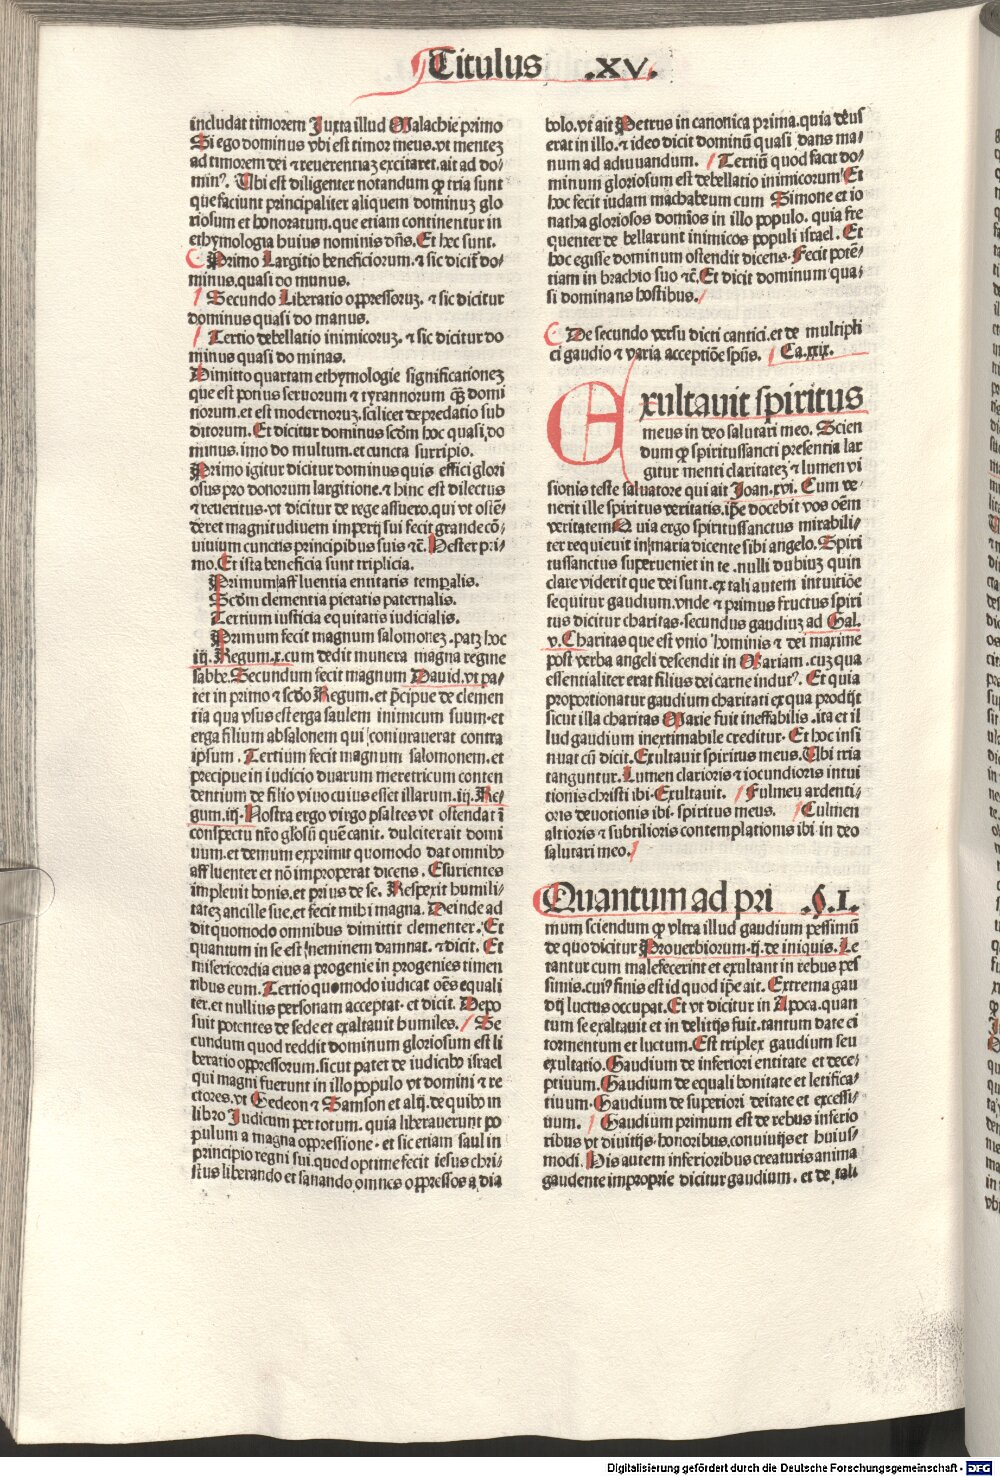 Titulus .XV.
includat timorem Juxta illud Malachie primo
Si ego dominus vbi est timor meus. vt mentez
ad timorem dei ⁊ reuerentiaz excitaret. ait ad do⸗
minꝰ. Ubi est diligenter notandum ꝙ tria sunt
que faciunt principaliter aliquem dominuz glo
riosum et honoratum. que etiam continentur in
ethymologia huius nominis dñs. Et hec sunt.
Primo Largitio beneficiorum. ⁊ sic dicit̄ do⸗
minus. quasi do munus.
Secundo Liberatio oppressoruz. ⁊ sic dicitur
dominus quasi do manus.
Tertio debellatio inimicoruz. ⁊ sic dicitur do
minus quasi do minas.
Dimitto quartam ethymologie significationez
que est potius seruorum ⁊ tyrannorum ꝙ̄ domi
norum. et est modernoruz. scilicet depredatio sub
ditorum. Et dicitur dominus scd̄m hoc quasi. do
minus. imo do multum. et cuncta surripio.
Primo igitur dicitur dominus quis effici glori
osus pro donorum largitione. ⁊ hinc est dilectus
⁊ reueritus. vt dicitur de rege assuero. qui vt osten̄
deret magnitudinem imperij sui fecit grande cō⸗
uiuium cunctis principibus suis ⁊c̄. Hester pri⸗
mo. Et ista beneficia sunt triplicia.
Primum affluentia entitatis temp̱alis.
Scd̄m clementia pietatis paternalis.
Tertium iusticia equitatis iudicialis.
Primum fecit magnum salomonez. patz hoc
iij. Regum. x. cum dedit munera magna regine
sabbe. Secundum fecit magnum Dauid. vt pa⸗
tet in primo ⁊ scd̄o Regum. et p̄cipue de clemen
tia qua vsus est erga saulem inimicum suum. et
erga filium absalonem qui coniurauerat contra
ipsum. Tertium fecit magnum salomonem. et
precipue in iudicio duarum meretricum conten
dentium de filio viuo cuius esset illarum. iij. Re⸗
gum. iij. Nostra ergo virgo psaltes vt ostendat ī
conspectu nr̄o glosū quē canit. dulciter ait domi
num. et demum exprimit quomodo dat omnibꝰ
affluenter et nō improperat dicens. Esurientes
impleuit bonis. et prius de se. Respexit humili⸗
tatez ancille sue. et fecit mihi magna. Deinde ad
dit quomodo omnibus dimittit clementer. Et
quantum in se est neminem damnat. ⁊ dicit. Et
misericordia eius a progenie in progenies timen
tibus eum. Tertio quomodo iudicat oēs equali
ter. et nullius personam acceptat. et dicit. Depo
suit potentes de sede et exaltauit humiles. Se
cundum quod reddit dominum gloriosum est li
beratio oppressorum. sicut patet de iudicibꝰ israel
qui magni fuerunt in illo populo vt domini ⁊ re
ctores. vt Gedeon ⁊ Samson et alij. de quibꝰ in
libro Judicum per totum. quia liberauerunt po
pulum a magna oppressione. et sic etiam saul in
principio regni sui. quod optime fecit iesus chri⸗
stus liberando et sanando omnes oppressos a dia
bolo. vt ait Petrus in canonica prima. quia deus
erat in illo. ⁊ ideo dicit dominū quasi dans ma⸗
num ad adiuuandum. Tertiū quod facit do⸗
minum gloriosum est debellatio inimicorum Et
hoc fecit iudam machabeum cum Simone et io
natha gloriosos domīos in illo populo. quia fre
quenter debellarunt inimicos populi israel. Et
hoc egisse dominum ostendit dicens. Fecit potē⸗
tiam in brachio suo ⁊c̄. Et dicit dominum qua⸗
si dominans hostibus.
De secundo versu dicti cantici. et de multipli
ci gaudio ⁊ varia acceptiōe sp̄us. Ca. xxix.
Exultauit spiritus
meus in deo salutari meo. Scien
dum ꝙ spiritussancti presentia lar
gitur menti claritatez ⁊ lumen vi
sionis teste saluatore qui ait Joan. xvi. Cum ve⸗
nerit ille spiritus veritatis. ip̄e docebit vos oēm
veritatem Quia ergo spiritussanctus mirabili⸗
ter requieuit in maria dicente sibi angelo. Spiri
tussanctus superueniet in te. nulli dubiuz quin
clare viderit que dei sunt. ex tali autem intuitiōe
sequitur gaudium. vnde ⁊ primus fructus spiri
tus dicitur charitas. secundus gaudiuz ad Gal.
v. Charitas que est vnio hominis ⁊ dei maxime
post verba angeli descendit in Mariam. cuz qua
essentialiter erat filius dei carne indutꝰ. Et quia
proportionatur gaudium charitati ex qua prodijt
sicut illa charitas Marie fuit ineffabilis. ita et il
lud gaudium inextimabile creditur. Et hoc insi
nuat cū dicit. Exultauit spiritus meus. Ubi tria
tanguntur. Lumen clarioris ⁊ iocundioris intui
tionis christi ibi. Exultauit. Fulmeu ardenti⸗
oris deuotionis ibi. spiritus meus. Culmen
altioris ⁊ subtilioris contemplationis ibi in deo
salutari meo.
Quantum ad pri .§.I.
mum sciendum ꝙ vltra illud gaudium pessimū
de quo dicitur Prouerbiorum. ij. de iniquis. Le
tantur cum malefecerint et exultant in rebus pes
simis. cuiꝰ finis est id quod ip̄e ait. Extrema gau
dij luctus occupat. Et vt dicitur in Apoca. quan
tum se exaltauit et in delitijs fuit. tantum date ei
tormentum et luctum. Est triplex gaudium seu
exultatio. Gaudium de inferiori entitate et dece⸗
ptiuum. Gaudium de equali bonitate et letifica⸗
tiuum. Gaudium de superiori deitate et excessi⸗
uum. Gaudium primum est de rebus inferio
ribus vt diuitijs. honoribus. conuiuijs et huius⸗
modi. His autem inferioribus creaturis anima
gaudente improprie dicitur gaudium. et de tali
Digitalisierung gefördert durch die Deutsche Forschungsgemeinschaft - DFG